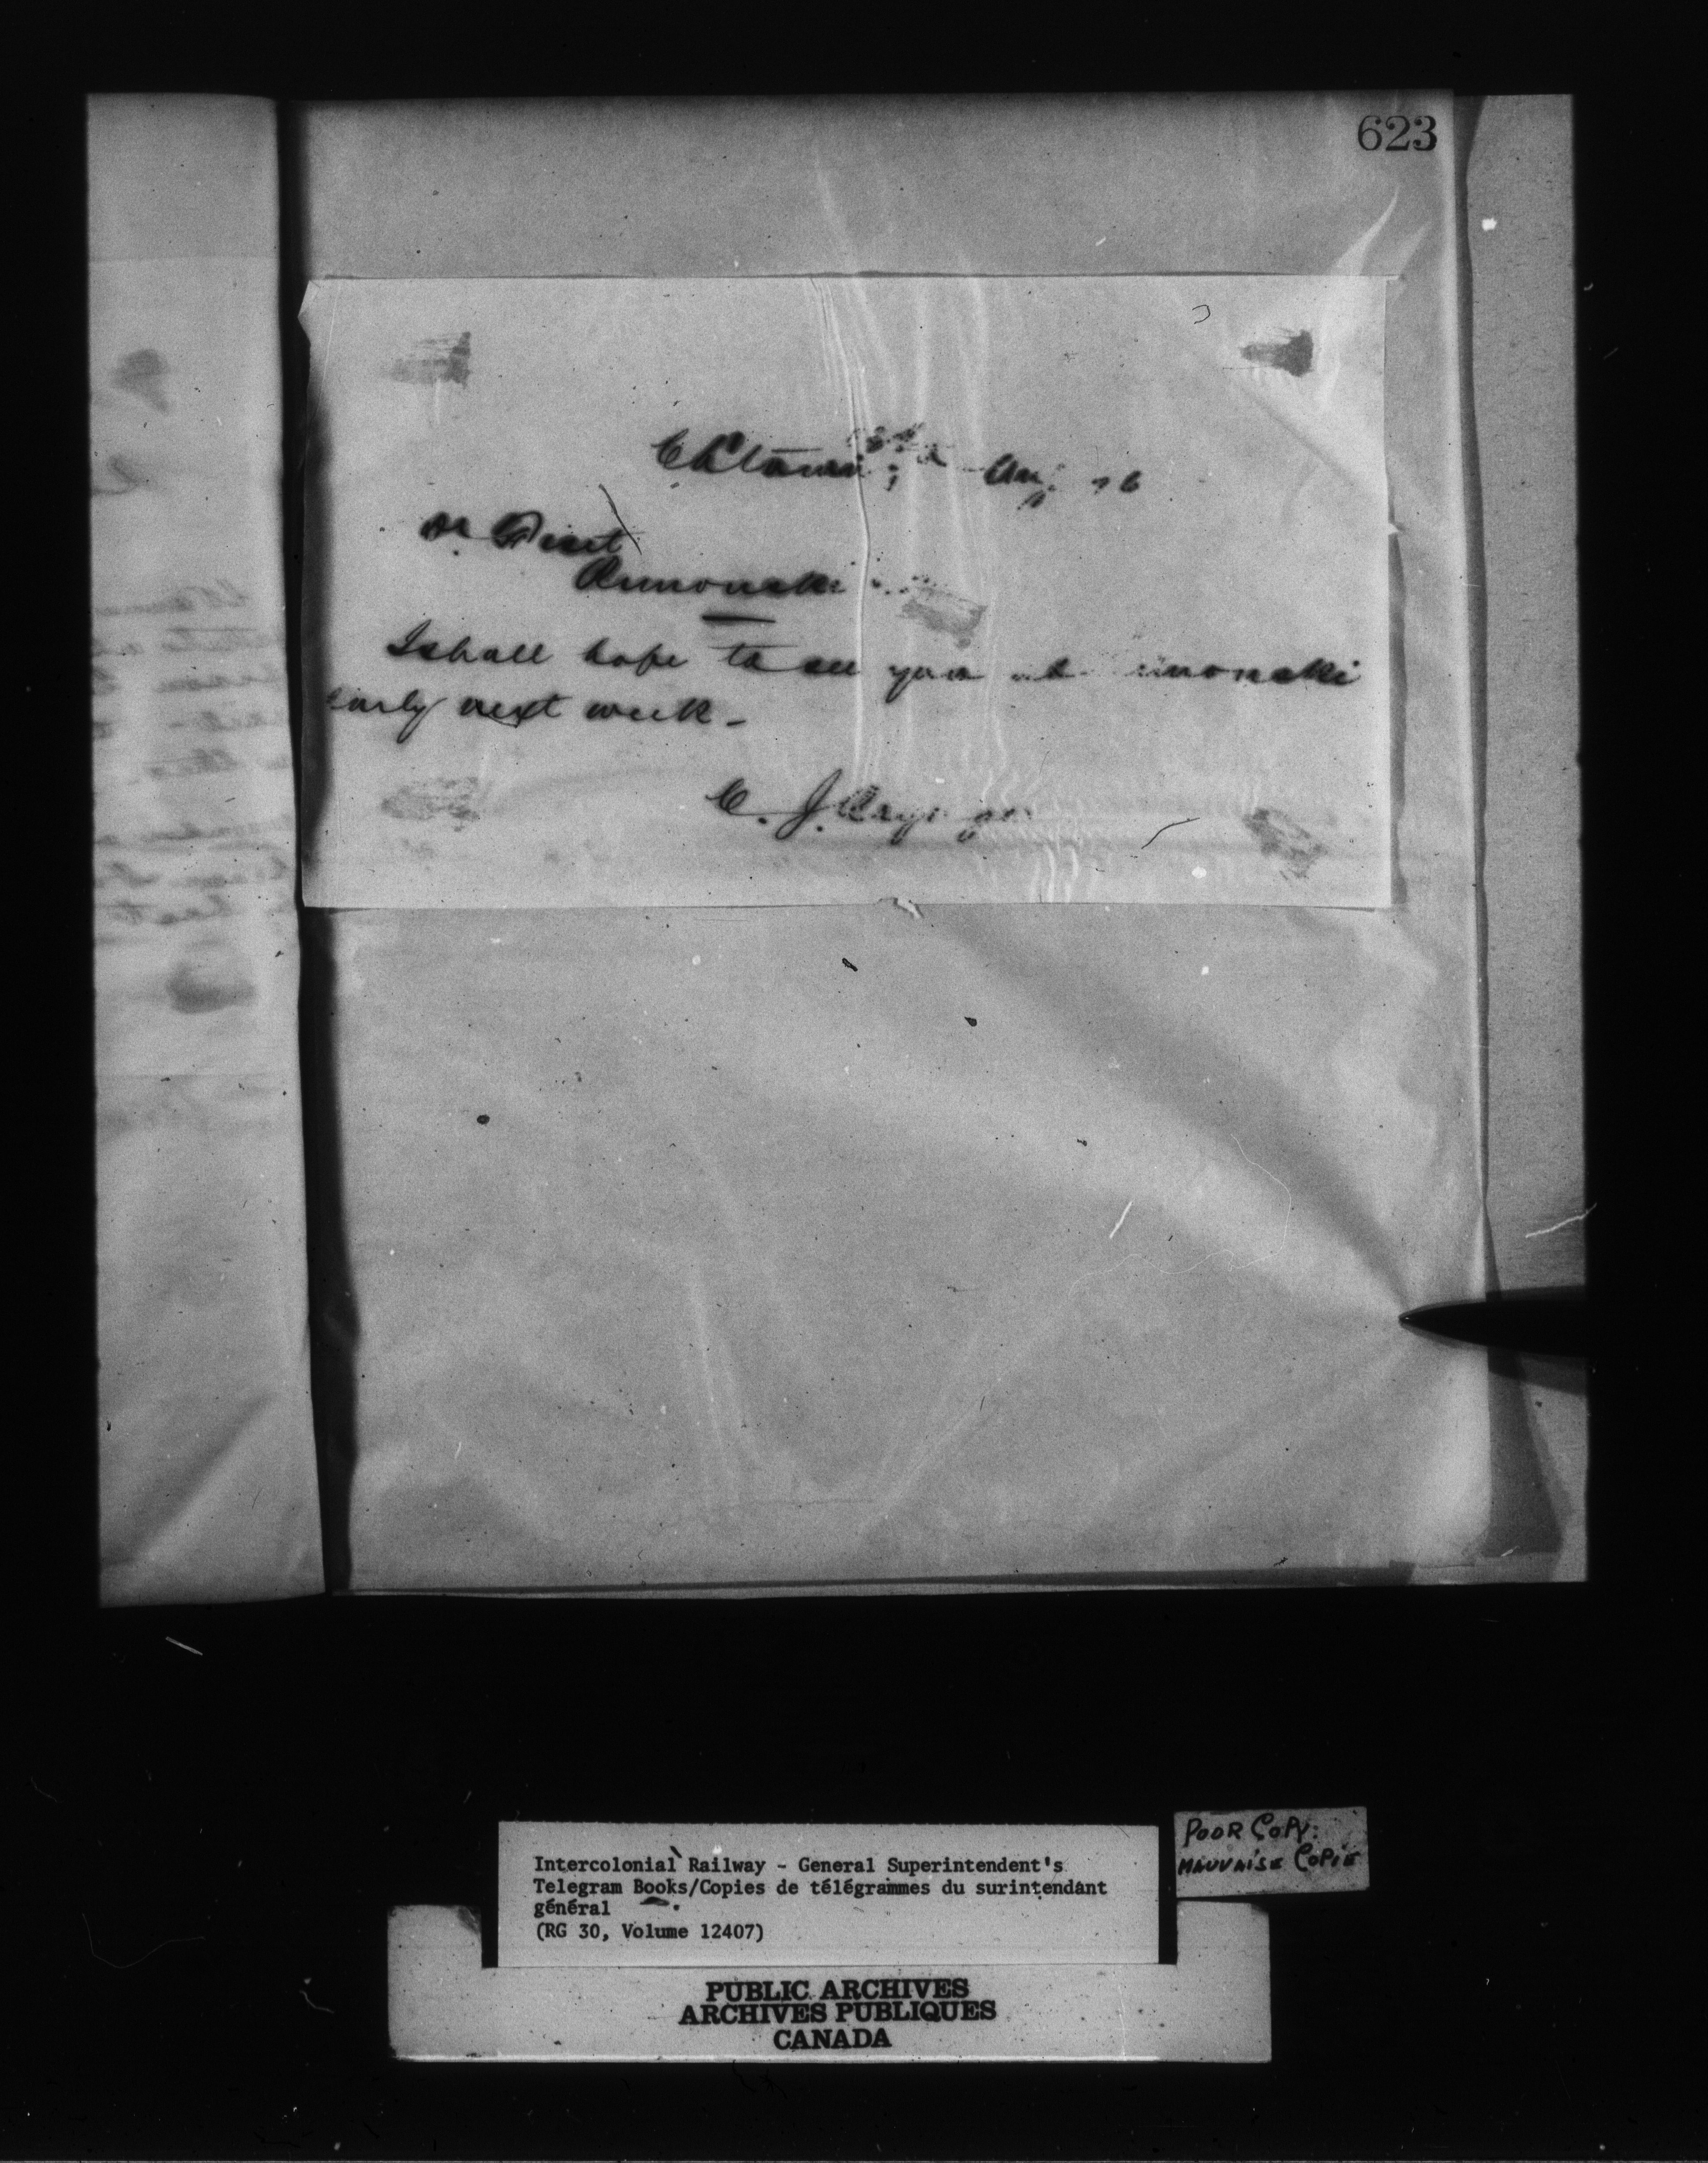 623
Aug 26
Dr Fiset
Rimouski
I shall hope to see you at Rimouski
early next week -
C. J. Brydges
Intercolonial Railway - General Superintendent's
Telegram Books/Copies de télégrammes du surintendant
général
(RG 30, Volume 12407)
POOR COPY.
MAUVAISE COPIE
PUBLIC ARCHIVES
ARCHIVES PUBLIQUES
CANADA